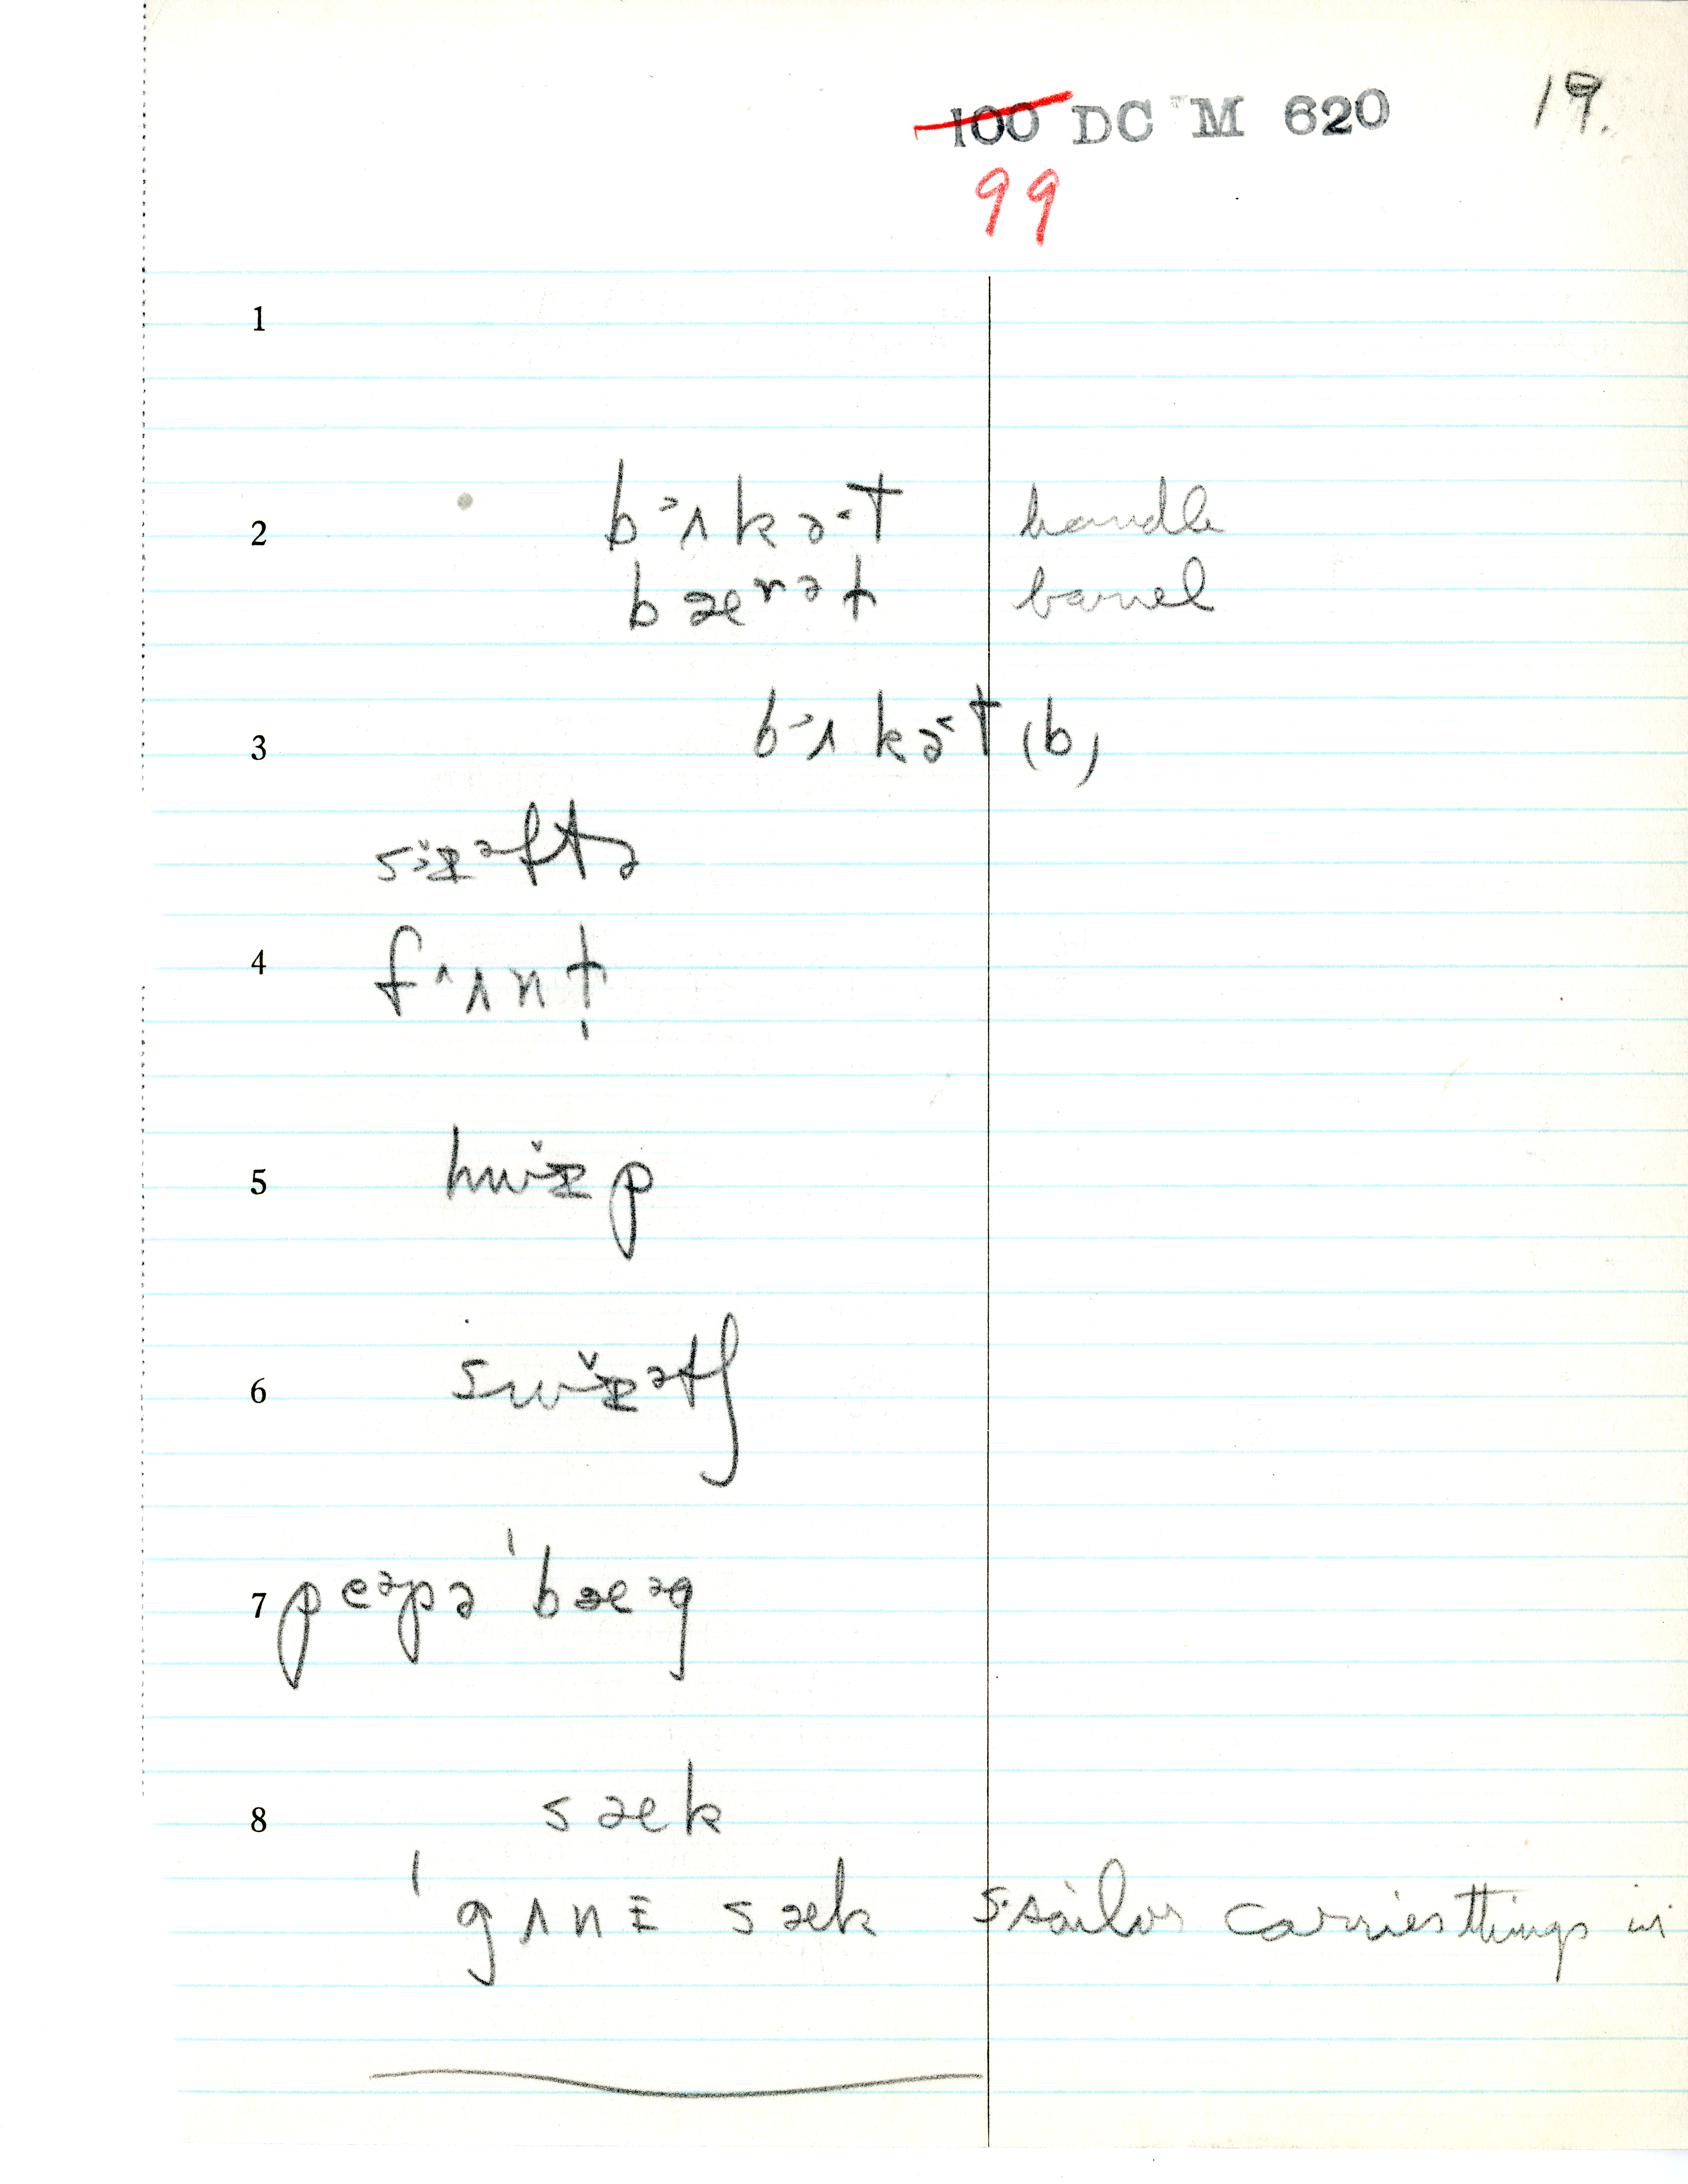 100 DC M 620 19.
99
1
2 bɜʌkə˂t handle
bæʳət barrel
3 bɜʌkə˂t (b)
sɪ̌ᵊftə
4 fʌʌnt̩
5 hwɪ̌p
6 swɪ̌ᵊtʃ
7 peᵊpə ˈbæᵊg
8 sæk
ˈgʌnɪ sæk sailor carries things in